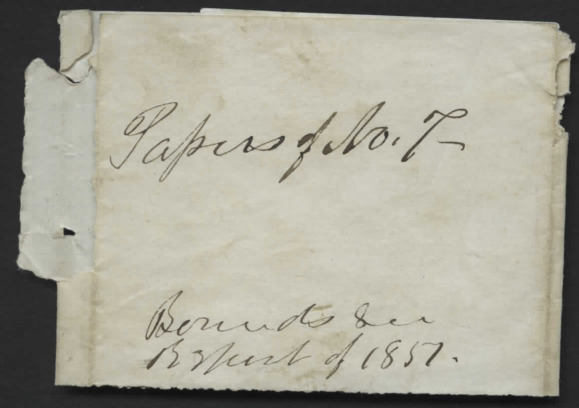 Papers of No. 7
Bounds &c
Report of 1857.